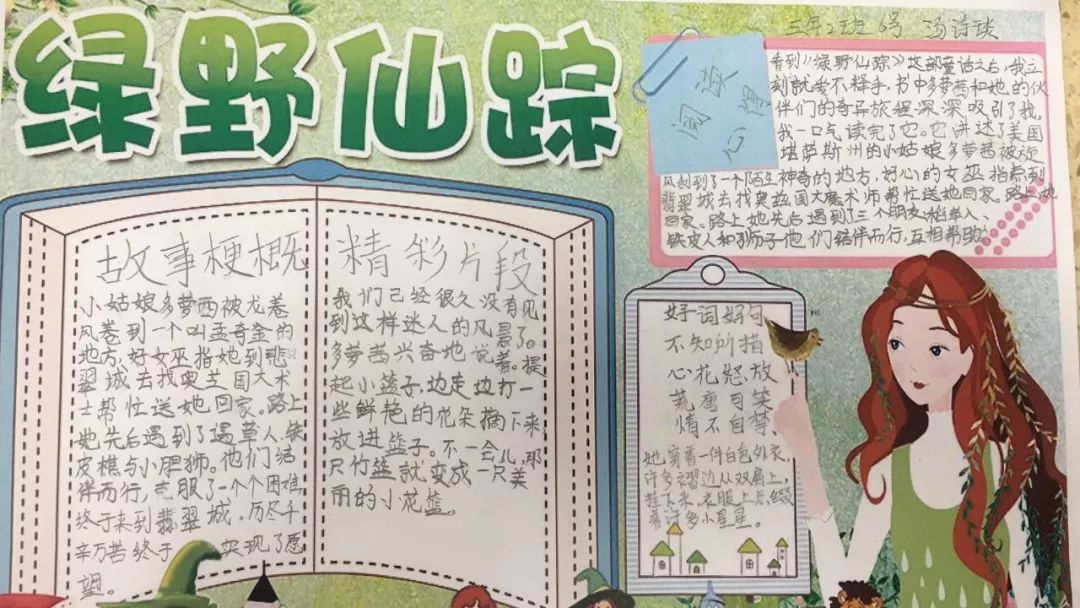 绿野仙踪
三年2班 6号 汤诗琰
阅读
心得
看到《绿野仙踪》这部童话之后,我立
刻就爱不释手,书中多萝茜和她的伙
伴们的奇异旅程深深吸引了我,
我一口气读完了它。它讲述了美国
堪萨斯州的小姑娘多萝茜被旋
风刮到了一个陌生神奇的地方,好心的女巫指点到
翡翠城去找奥兹国大魔术师帮忙送她回家。路上她
回家。路上她先后遇到了三个朋友稻草人、
铁皮人和狮子他们结伴而行,互相帮助
故事梗概
小姑娘多萝西被龙卷
风卷到一个叫孟奇金的
地方,好女巫指她到翡
翠城去找奥芝国大术
士帮忙送她回家。路上
她先后遇到了稻草人、铁
皮樵与小胆狮。他们结
伴而行,克服了一个个困难
终于来到翡翠城,历尽千
辛万苦终于 实现了愿
望。
精彩片段
我们已经很久没有见
到这样迷人的风景了。
多萝茜兴奋地说着。提
起小篮子,边走边打一
些鲜艳的花朵摘下来
放进篮子。不一会儿,那
只竹篮就变成一只美
丽的小花篮。
好词好句
不知所措
心花怒放
荒唐可笑
情不自禁、
她,穿着一件白色外衣
许多褶边从双肩上,
挂下来,衣服上点缀
着许多小星星。